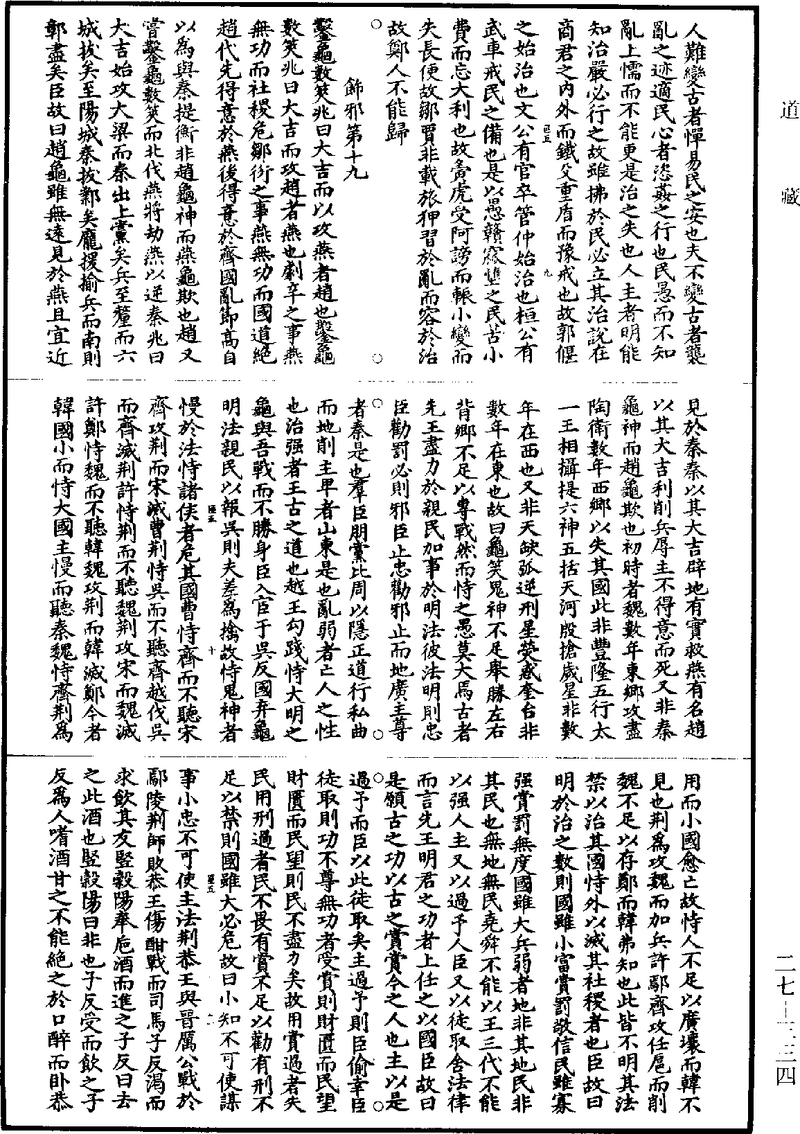 道藏
人難變古者憚易民之安也夫不變古者襲
亂之迹適民心者恣姦之行也民愚而不知
亂上懦而不能更是治之失也人主者明能
知治嚴必行之故雖拂於民必立其治說在
商君之内外而鐵殳重盾而豫戒也故郭偃
之始治也文公有官卒管仲始治也桓公有
武車戒民之備也是以愚贛窳墯之民苦小
費而忘大利也故夤虎受阿謗而輾小變而
失長便故鄒賈非載旅狎習於亂而容於治
故鄭人不能歸
飾邪第十九
鑿龜數筴兆曰大吉而以攻燕者趙也鑿龜
數筴兆曰大吉而攻趙者燕也劇辛之事燕
無功而社稷危鄒衍之事燕無功而國道絶
趙代先得意於燕後得意於齊國亂節髙自
以為與秦提衡非趙龜神而燕龜欺也趙又
嘗鑿龜數筴而北伐燕將劫燕以逆秦兆曰
大吉始攻大梁而秦出上黨矣兵至釐而六
城拔矣至陽城秦拔鄴矣龐援揄兵而南則
鄣盡矣臣故曰趙龜雖無遠見於燕且宜近
見於秦秦以其大吉辟地有實救燕有名趙
以其大吉利削兵辱主不得意而死又非秦
龜神而趙龜欺也初時者魏數年東鄉攻盡
陶衛數年西鄉以失其國此非豐隆五行太
一王相攝提六神五括天河殷搶歲星非數
年在西也又非天缺弧逆刑星熒惑奎台非
數年在東也故曰龜筴鬼神不足舉勝左右
背鄉不足以專戰然而恃之愚莫大焉古者
先王盡力於親民加事於明法彼法明則忠
臣勸罰必則邪臣止忠勸邪止而地廣主尊
者秦是也羣臣朋黨比周以隱正道行私曲
而地削主卑者山東是也亂弱者亡人之性
也治强者王古之道也越王勾踐恃大明之
龜與吾戰而不勝身臣入宦于吳反國弃龜
明法親民以報吳則夫差為擒故恃鬼神者
慢於法恃諸侯者危其國曹恃齊而不聽宋
齊攻荆而宋滅曹荆恃吳而不聽齊越伐吳
而齊滅荆許恃荆而不聽魏荆攻宋而魏滅
許鄭恃魏而不聽韓魏攻荆而韓滅鄭今者
韓國小而恃大國主慢而聽秦魏恃齊荆為
用而小國愈亡故恃人不足以廣壤而韓不
見也荆為攻魏而加兵許鄢齊攻任扈而削
魏不足以存鄭而韓弗知也此皆不明其法
禁以治其國恃外以滅其社稷者也臣故曰
明於治之數則國雖小富賞罰敬信民雖寡
强賞罰無度國雖大兵弱者地非其地民非
其民也無地無民堯舜不能以王三代不能
以强人主又以過予人臣又以徒取舍法律
而言先王明君之功者上任之以國臣故曰
是願古之功以古之賞賞今之人也主以是
過予而臣以此徒取矣主過予則臣偷幸臣
徒取則功不尊無功者受賞則財匱而民望
財匱而民望則民不盡力矣故用賞過者失
民用刑過者民不畏有賞不足以勸有刑不
足以禁則國雖大必危故曰小知不可使謀
事小忠不可使主法荆恭王與晉厲公戰於
鄢陵荆師敗恭王傷酣戰而司馬子反渴而
求飲其友豎穀陽奉巵酒而進之子反曰去
之此酒也豎穀陽曰非也子反受而飲之子
反為人嗜酒甘之不能絶之於口醉而卧恭
二七—三三四